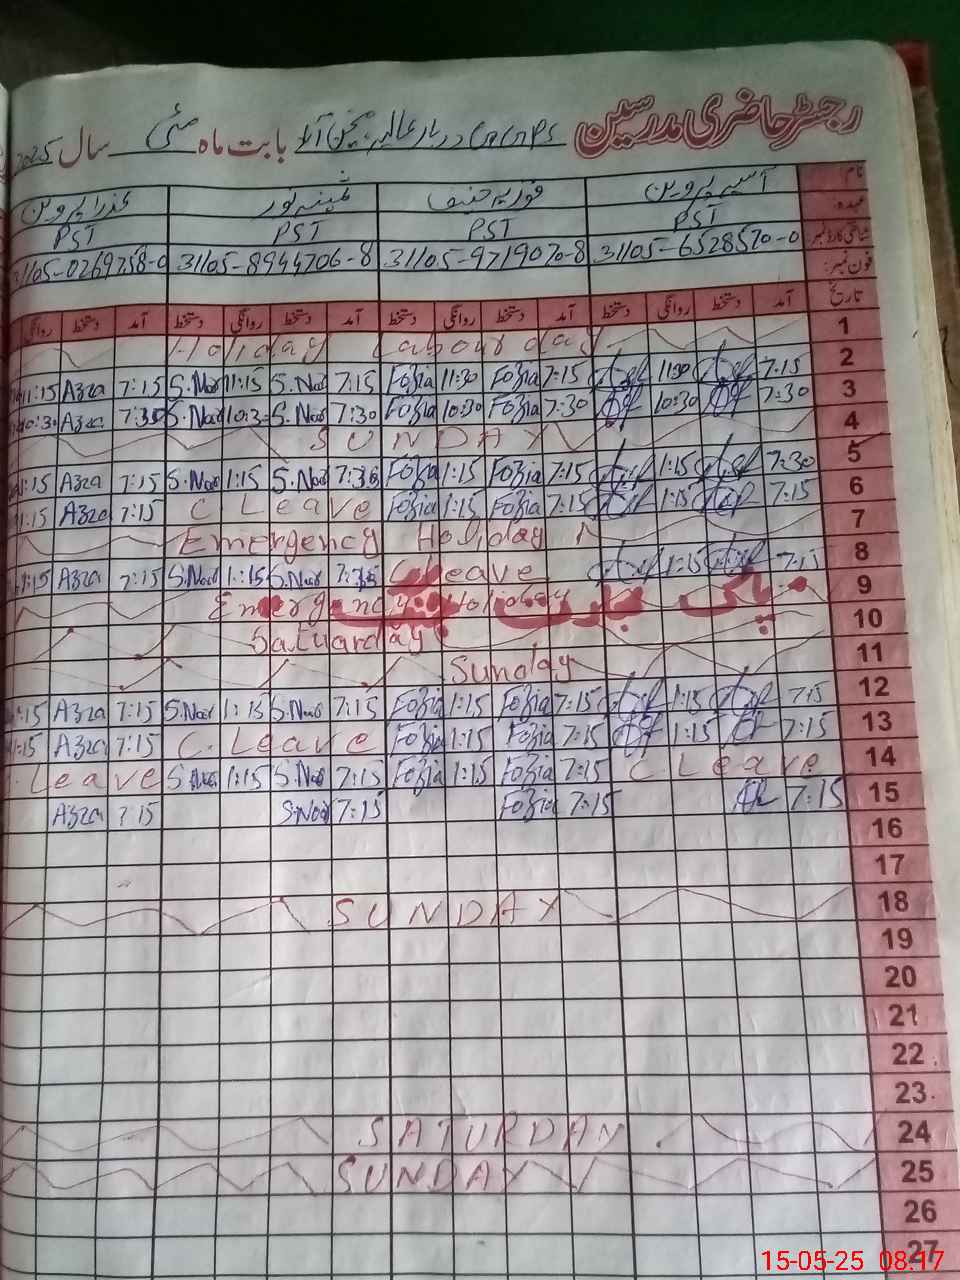 رجسٹر حاضری مدرسین GGPS دربار عالیہ بابت ماہ مئی سال 2025
نام آسیہ پروین فوزیہ حنیف ثمینہ نور عذرا پروین
عہدہ: PST PST PST PST
شناختی کارڈ نمبر 31105-6528570-0 31105-9719070-8 31105-8944706-8 31105-0269758-0
فون نمبر:
تاریخ آمد دستخط روانگی دستخط آمد دستخط روانگی دستخط آمد دستخط روانگی دستخط آمد دستخط روانگی
1 Holiday Labour day
2 7:15 11:30 7:15 Fozia 11:30 Fozia 7:15 S.Noor 11:15 S.Noor 7:15 Azra 11:15
3 7:30 10:30 7:30 Fozia 10:30 Fozia 7:30 S.Noor 10:30 S.Noor 7:30 Azra 10:30
4 SUNDAY
5 7:30 1:15 7:15 Fozia 1:15 Fozia 7:35 S.Noor 1:15 S.Noor 7:15 Azra 1:15
6 7:15 1:15 7:15 Fozia 1:15 Fozia C Leave 7:15 Azra 1:15
7 Emergency Holiday
8 7:15 1:15 C Leave 7:15 S.Noor 1:15 S.Noor 7:15 Azra 1:15
9 Emergency Holiday پاک بھارت جنگ
10 Satuarday
11 Sunday
12 7:15 1:15 7:15 Fozia 1:15 Fozia 7:15 S.Noor 1:15 S.Noor 7:15 Azra 1:15
13 7:15 1:15 7:15 Fozia 1:15 Fozia C. Leave 7:15 Azra 1:15
14 C. Leave 7:15 Fozia 1:15 Fozia 7:15 S.Noor 1:15 S.Noor Leave
15 7:15 7:15 Fozia 7:15 S.Noor 7:15 Azra
16
17
18 SUNDAY
19
20
21
22
23
24 SATURDAY
25 SUNDAY
26
27
15-05-25 08:17